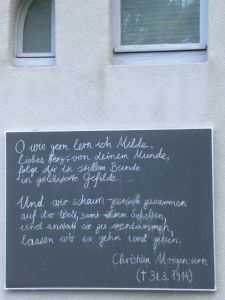 O wie gern lern ich Milde,
liebes Herz, von deinem Munde,
folge dir in stillem Bunde
in geklärtere Gefilde.
Und wir schaun zusammen
auf die Welt, samt ihrem Schelten,
und anstatt sie zu verdammen,
lassen wir sie gehn und gelten.
Christian Morgenstern
(† 31.3.1914)